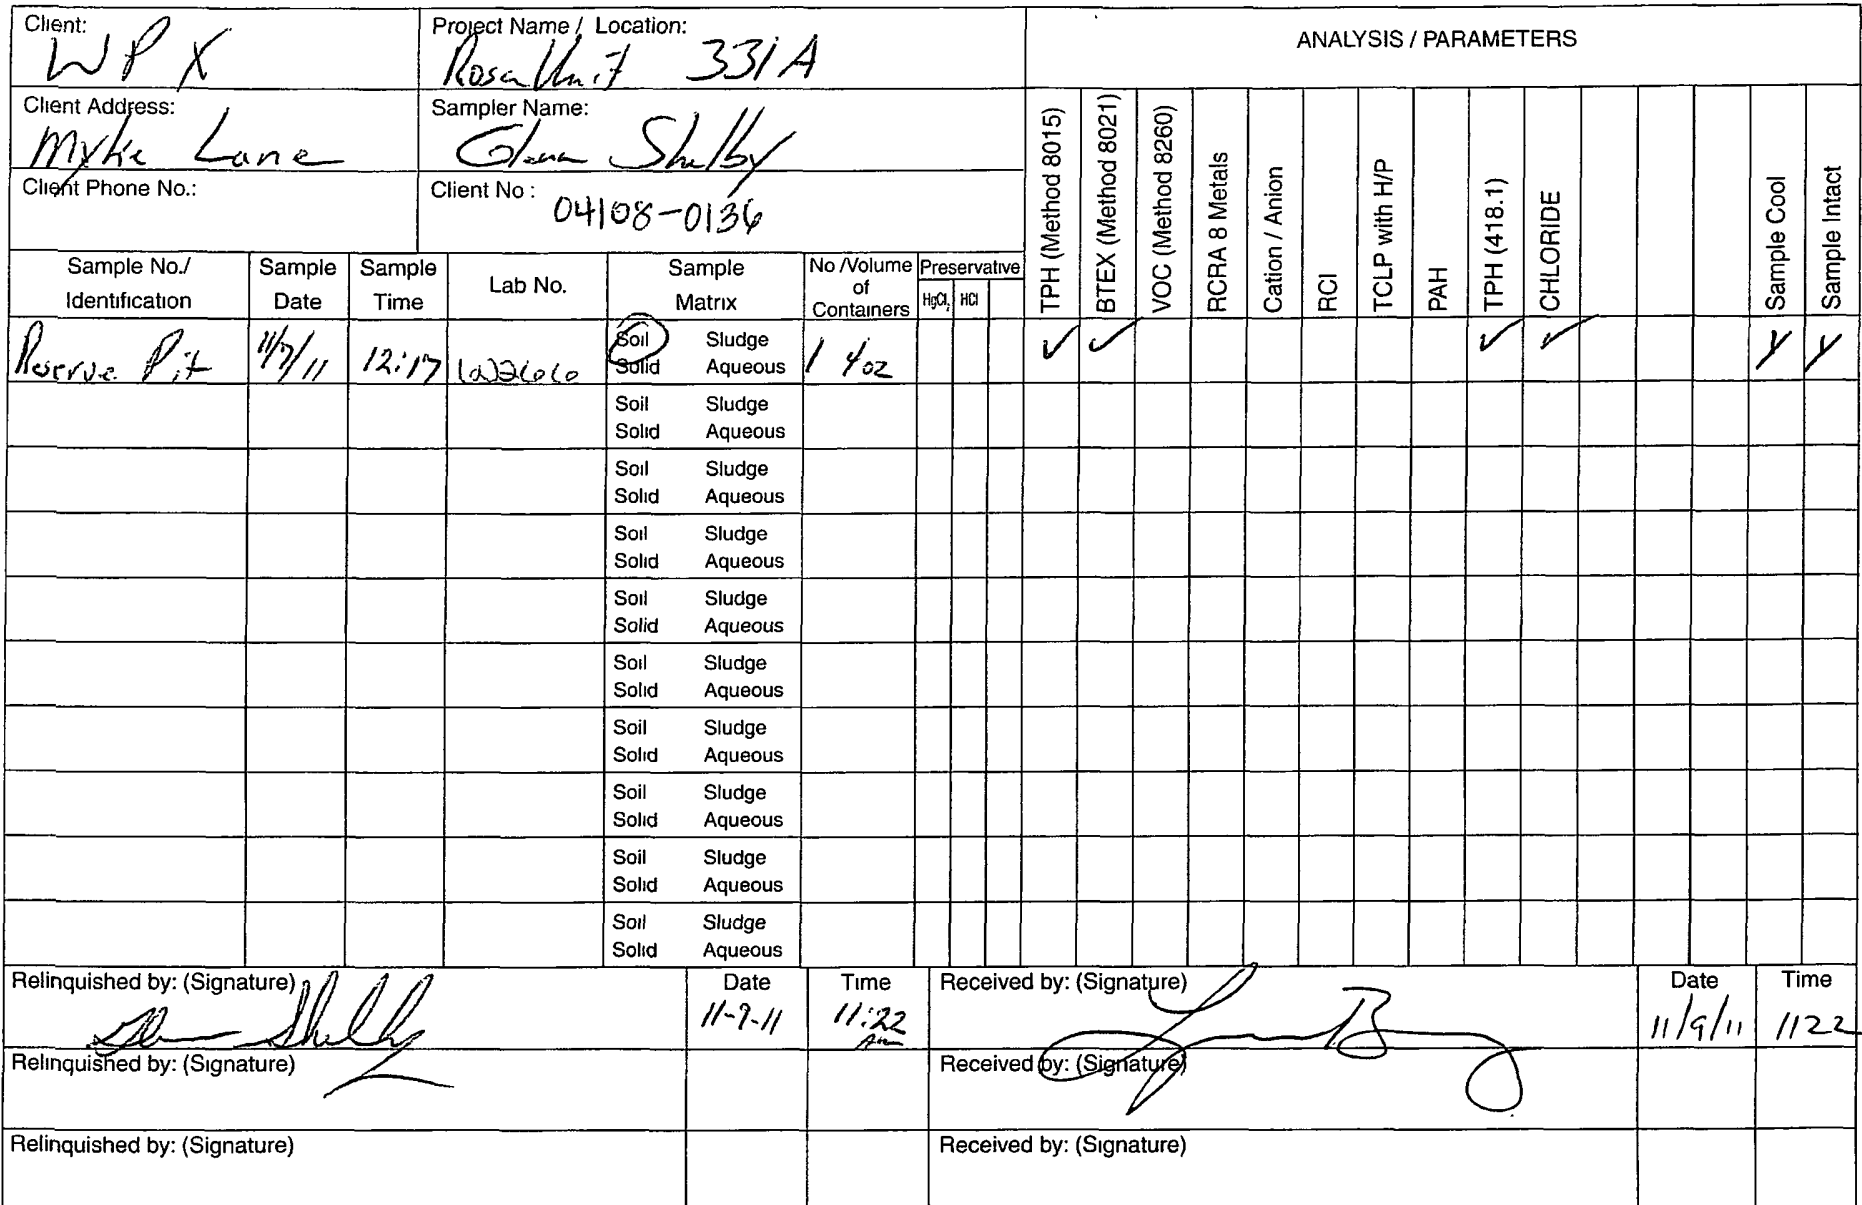 Client: WPX
Project Name / Location: Rosa Unit 331A
ANALYSIS / PARAMETERS
Client Address:
Lane
Sampler Name: Glenn Shelby
Client Phone No.:
Client No: 04108-0136
Sample No./ Identification
Sample Date
Sample Time
Lab No.
Sample Matrix
No /Volume of Containers
Preservative
HgCl2
HCl
TPH (Method 8015)
BTEX (Method 8021)
VOC (Method 8260)
RCRA 8 Metals
Cation / Anion
RCI
TCLP with H/P
PAH
TPH (418.1)
CHLORIDE
Sample Cool
Sample Intact
Reserve Pit 11/7/11 12:17 Soil Sludge 1 4oz ✓ ✓ ✓ ✓ Y Y
Solid Aqueous
Soil Sludge
Solid Aqueous
Soil Sludge
Solid Aqueous
Soil Sludge
Solid Aqueous
Soil Sludge
Solid Aqueous
Soil Sludge
Solid Aqueous
Soil Sludge
Solid Aqueous
Soil Sludge
Solid Aqueous
Soil Sludge
Solid Aqueous
Soil Sludge
Solid Aqueous
Relinquished by: (Signature) Date Time Received by: (Signature) Date Time
Glenn Shelby 11-9-11 11:22 Am 11/9/11 1122
Relinquished by: (Signature) Received by: (Signature)
Relinquished by: (Signature) Received by: (Signature)